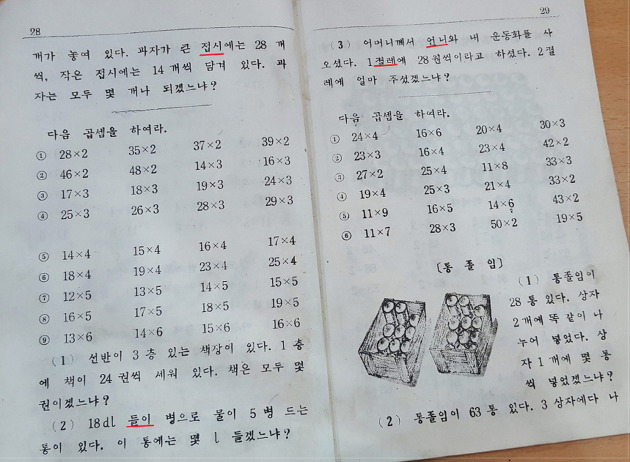 28
개가 놓여 있다. 과자가 큰 접시에는 28 개
씩, 작은 접시에는 14 개씩 담겨 있다. 과
자는 모두 몇 개나 되겠느냐?
다음 곱셈을 하여라.
① 28×2 35×2 37×2 39×2
② 46×2 48×2 14×3 16×3
③ 17×3 18×3 19×3 24×3
④ 25×3 26×3 28×3 29×3
⑤ 14×4 15×4 16×4 17×4
⑥ 18×4 19×4 23×4 25×4
⑦ 12×5 13×5 14×5 15×5
⑧ 16×5 17×5 18×5 19×5
⑨ 13×6 14×6 15×6 16×6
(1) 선반이 3 층 있는 책장이 있다. 1 층
에 책이 24 권씩 세워 있다. 책은 모두 몇
권이겠느냐?
(2) 18dl 들이 병으로 물이 5 병 드는
통이 있다. 이 통에는 몇 l 들겠느냐?
29
(3) 어머니께서 언니와 내 운동화를 사
오셨다. 1 켤레에 28 원씩이라고 하셨다. 2 켤
레에 얼마 주셨겠느냐?
다음 곱셈을 하여라.
① 24×4 16×6 20×4 30×3
② 23×3 16×4 23×4 42×2
③ 27×2 25×4 11×8 33×3
④ 19×4 25×3 21×4 33×2
⑤ 11×9 16×5 14×6 43×2
⑥ 11×7 28×3 50×2 19×5
[통졸임]
(1) 통졸임이
28 통 있다. 상자
2 개에 똑 같이 나
누어 넣었다. 상
자 1 개에 몇 통
씩 넣었겠느냐?
(2) 통졸임이 63 통 있다. 3 상자에다 나